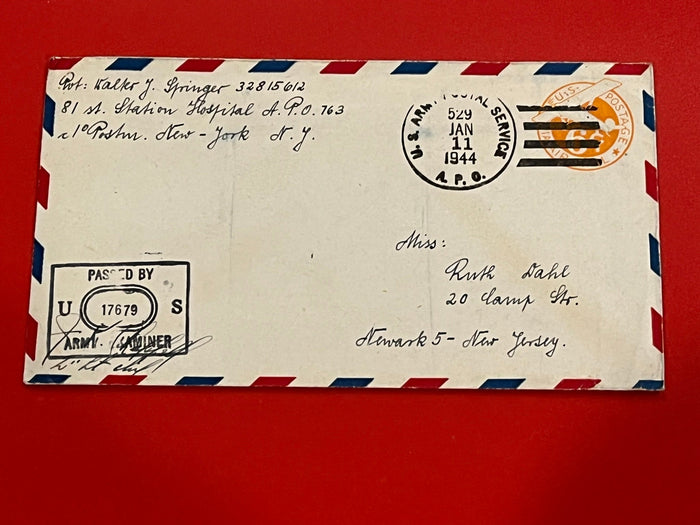 Pvt: Walter J. Springer 32815612
81 st. Station Hospital A.P.O. 763
c/o Postm. New-York N.Y.
U.S. ARMY POSTAL SERVICE
529
JAN
11
1944
A.P.O.
U.S. POSTAGE
6¢
AIR MAIL
Miss:
Ruth Dahl
20 Camp Str.
Newark 5 - New Jersey.
PASSED BY
U 17679 S
ARMY EXAMINER
2nd Lt